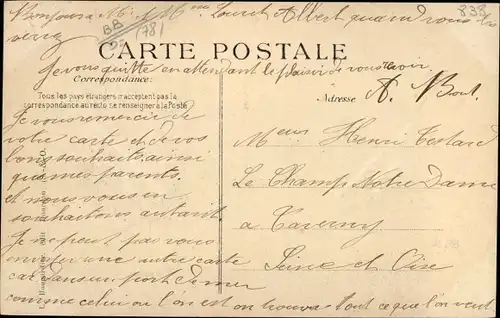 Bonjour à M. & Mme Laurent Albert quand vous
verrez
BB
(78)
CARTE POSTALE
Je vous quitte en attendant le plaisir de vous revoir
Correspondance:
Tous les pays étrangers n'acceptent pas la
correspondance au recto, se renseigner à la Poste
Adresse
Je vous remercie de
votre carte et de vos
bons souhaits, ainsi
que mes parents.
et nous vous en
souhaitons autant
Je ne peut pas vous
envoyer une autre carte
car dans un port de mer
comme celui ou l'on est on trouve tout ce que l'on veut
Henri Testard
Le Champ Notre Dame
a Taverny
Seine et Oise